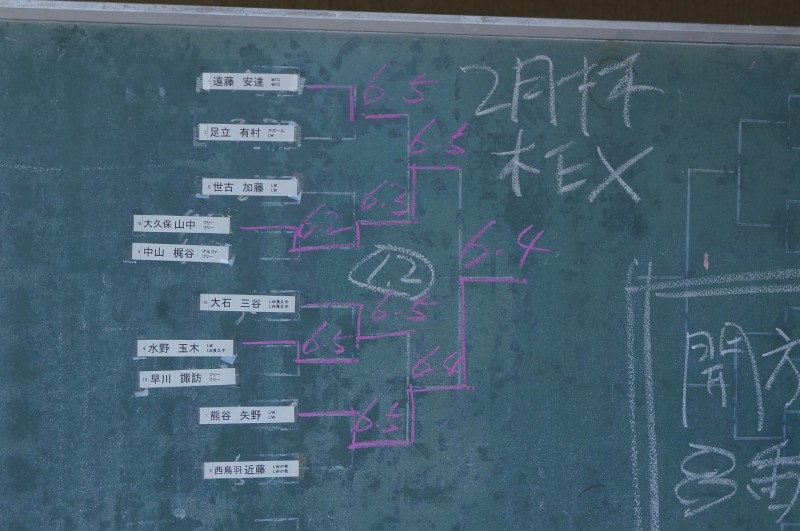 2月杯
木EX
遠藤 安達
6.5
足立 有村
6.5
世古 加藤
6.3
大久保 山中 フリー フリー
6.2
中山 梶谷
6.4
12
大石 三谷
6.5
水野 玉木
6.5
6.4
早川 諏訪 フリー フリー
熊谷 矢野
6.5
西鳥羽 近藤
開方
8番